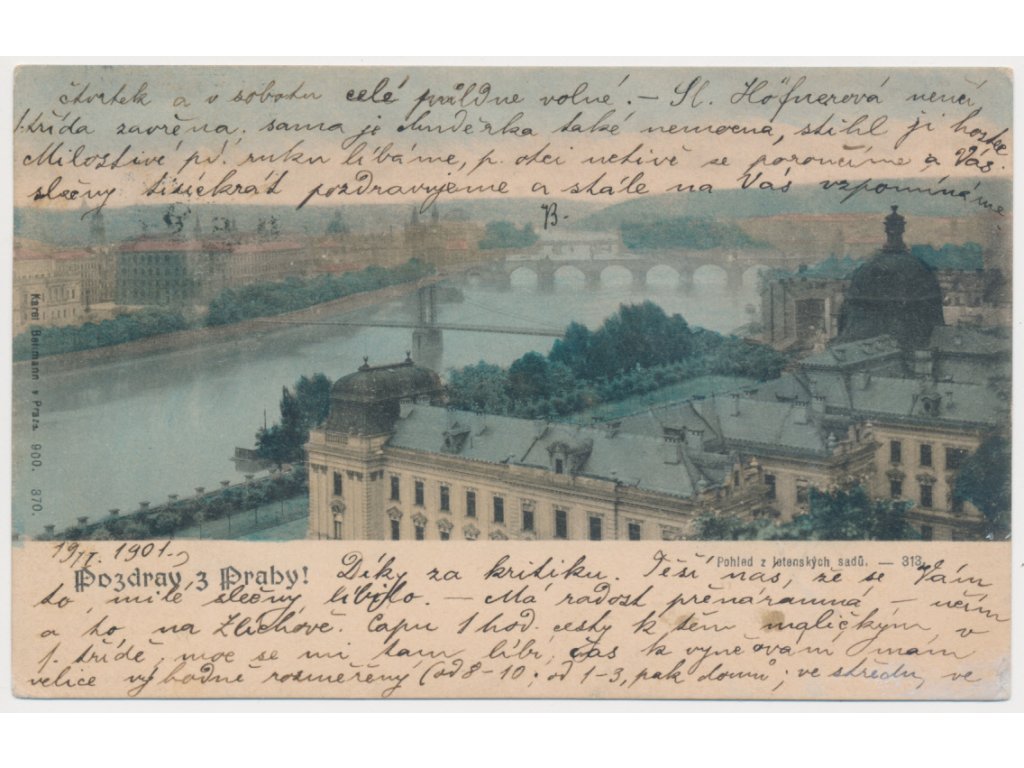 čtvrtek a v sobotu celé půldne volné. – Sl. Höfnerová není,
1. třída zavřěna. sama je chuděrka také nemocna, stihl ji
Milostivé pí. ruku líbáme, p. otci uctivě se poroučíme a Vás
slečny tisíckrát pozdravujeme a stále na Vás vzpomínáme
B.
Karel Bellmann v Praze 900. 370.
19 1901.
Pohled z letenských sadů. — 313.
Pozdrav z Prahy! Díky za kritiku. Těší nás, že se Vám
to, milé slečny líbilo. – Má radost přenáramná – učím
a to na Zlíchově. Capu 1 hod. cesty k těm maličkým v
1. třídě, moc se mi tam líbí, čas k vyučování mám
velice výhodně rozměřěný (od 8–10; od 1–3, pak domů; ve středu, ve